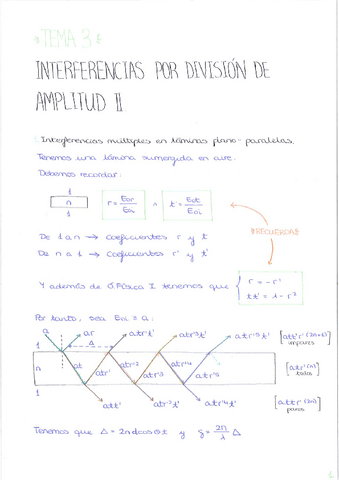 * TEMA 3 *
INTERFERENCIAS POR DIVISIÓN DE
AMPLITUD II
Interferencias multiples en láminas plano-paralelas.
Tenemos una lámina sumergida en aire.
Debemos recordar:
1
n
1
r = E0r/E0i ^ t = E0t/E0i
¡RECUERDA!
De 1 a n → coeficientes r y t
De n a 1 → coeficientes r' y t'
Y además de O. Física I tenemos que { r = -r'
tt' = 1 - r²
Por tanto, sea E0i = a:
a ar Δ atr't' atr'³t' atr'⁵t'
1
n
1
at atr' atr'² atr'³ atr'⁴
att' atr'²t' atr'⁴t'
impares
todos
pares
Tenemos que Δ = 2nd cosθt y δ = 2π/λ Δ